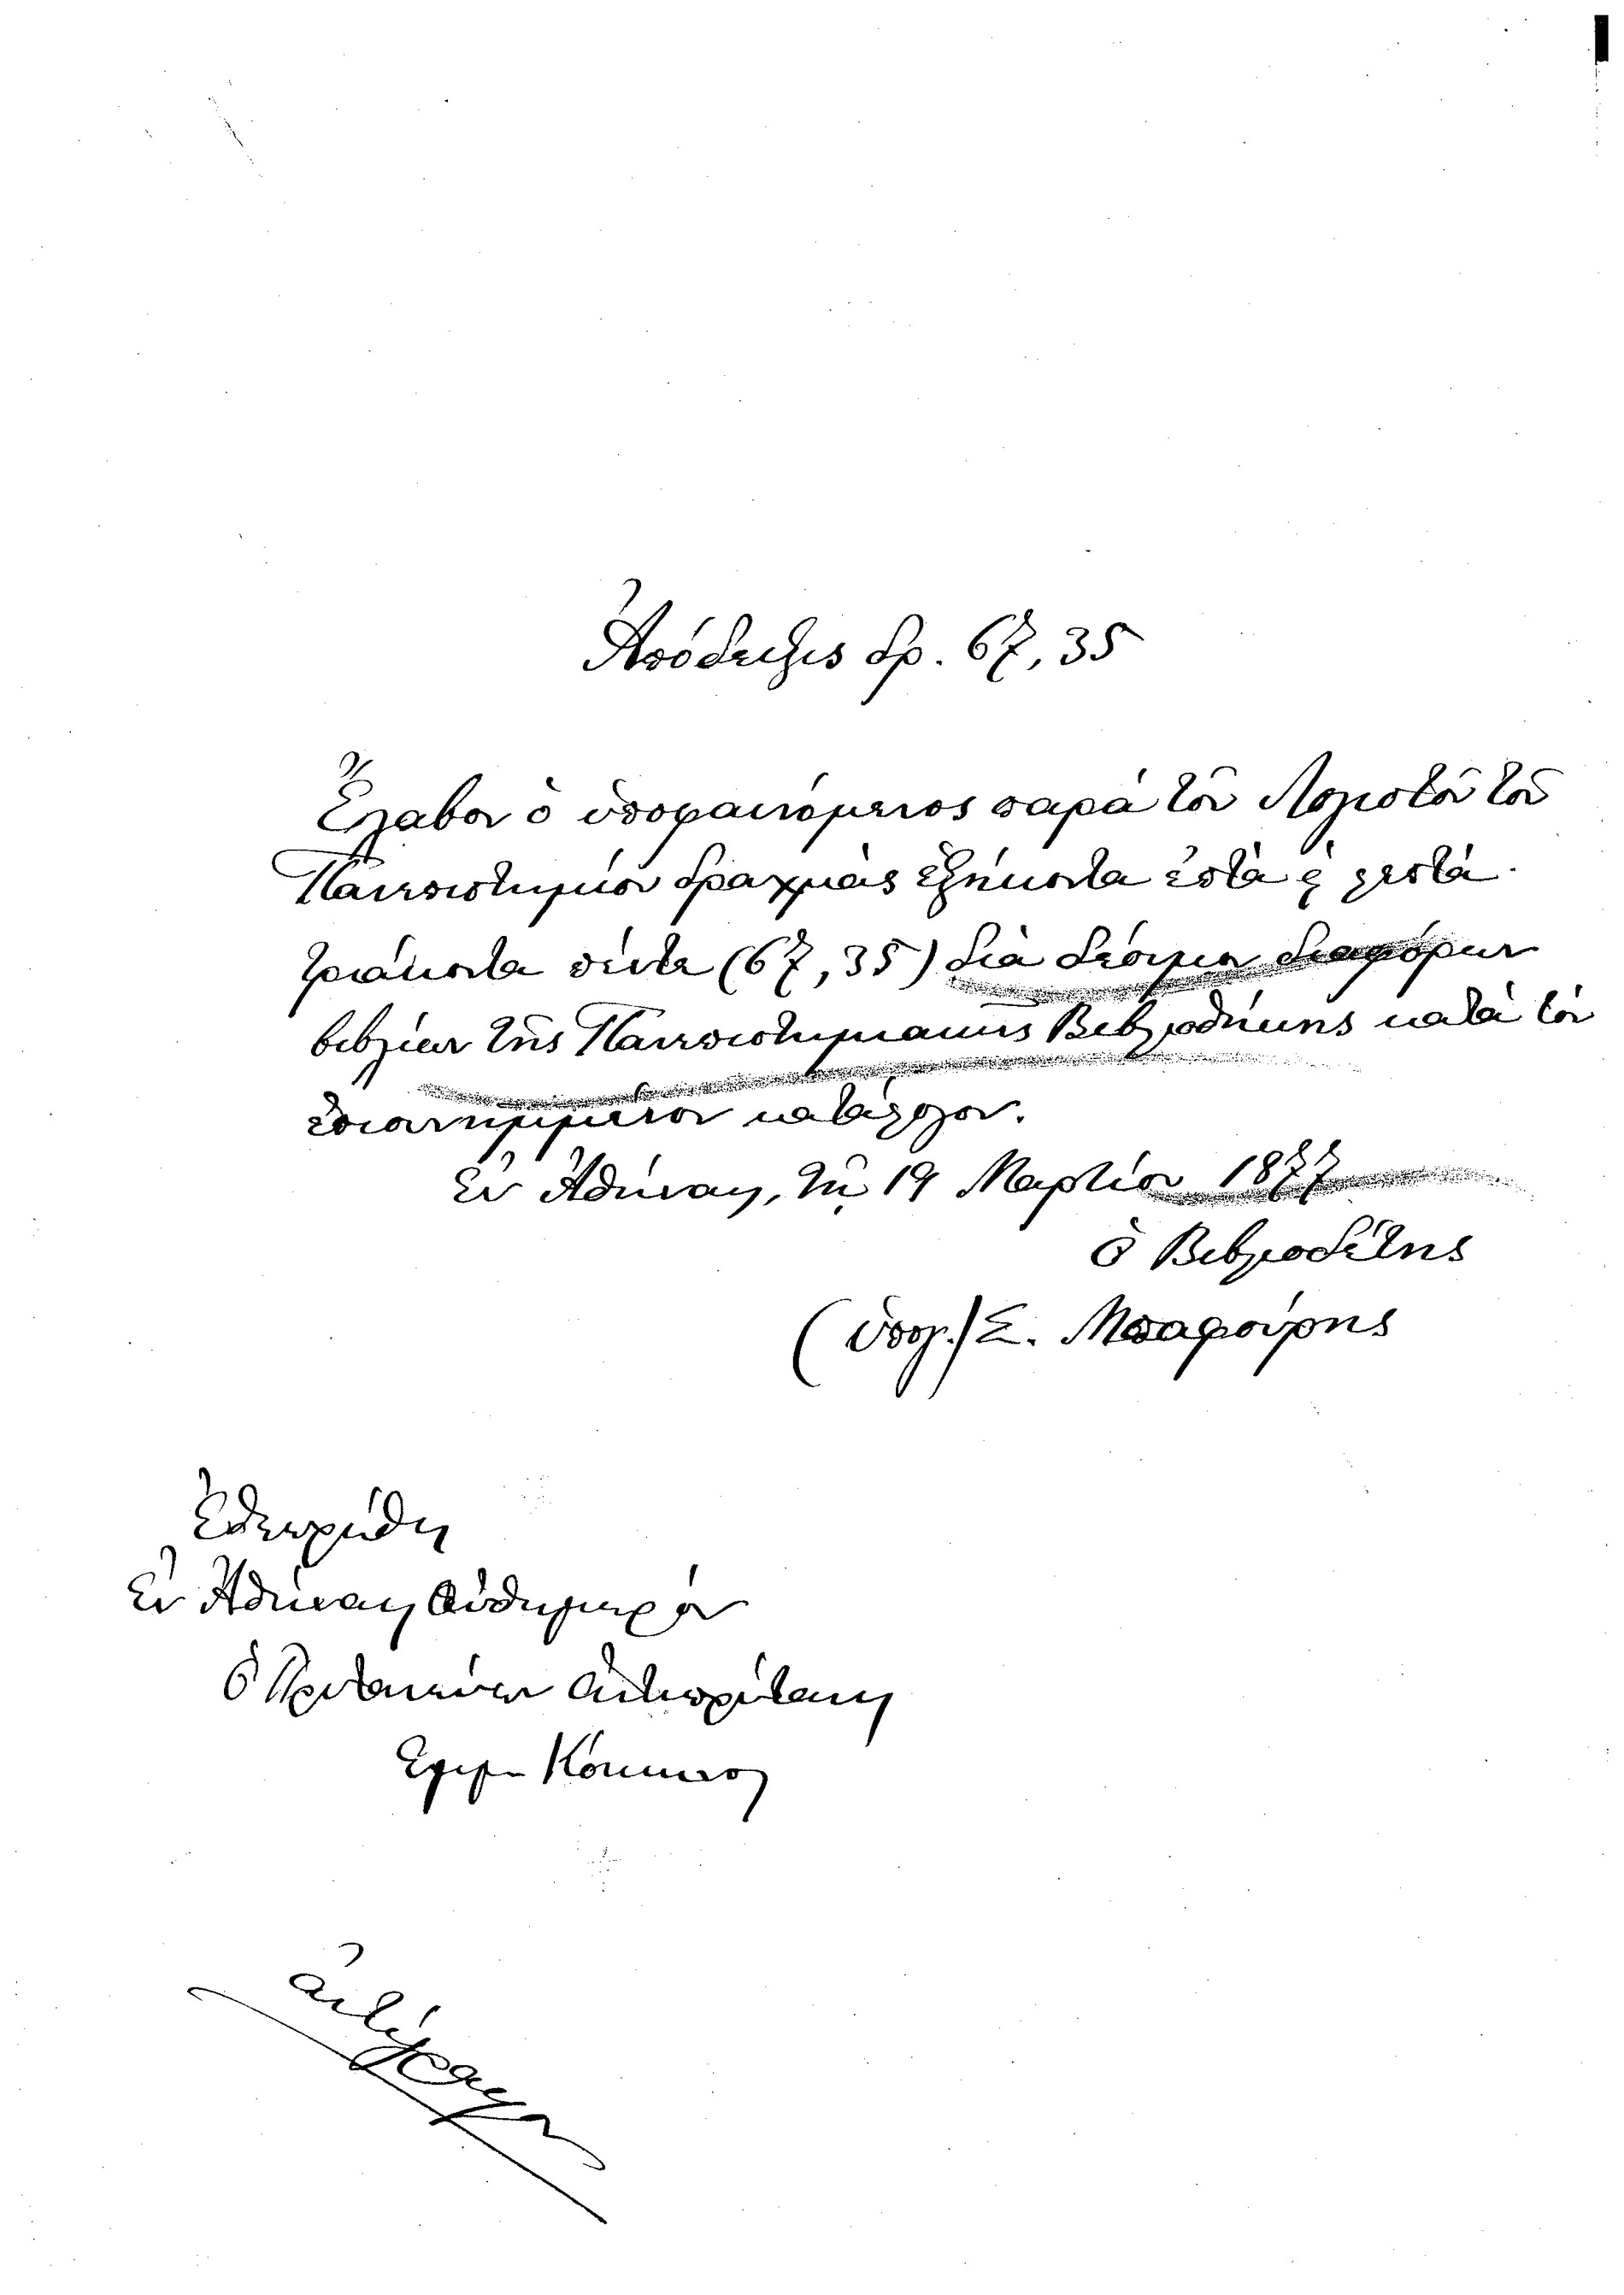 Ἀπόδειξις δρ. 67,35
Ἔλαβον ὁ ὑποφαινόμενος παρὰ τοῦ Λογιστοῦ τοῦ
Πανεπιστημίου δραχμὰς ἑξήκοντα ἑπτὰ & λεπτὰ
τριάκοντα πέντε (67,35) διὰ δέσιμον διαφόρων
βιβλίων τῆς Πανεπιστημιακῆς Βιβλιοθήκης κατὰ τὸν
ἐπισυνημμένον κατάλογον.
Ἐν Ἀθήναις, τῇ 19 Μαρτίου 1877
ὁ Βιβλιοδέτης
(ὑπογ.) Σ.
Ἐθεωρήθη
Ἐν Ἀθήναις αὐθημερόν
Ὁ Πρυτανεύων ἀντιπρύτανις
Κόκκινος
ἀντίγραφον